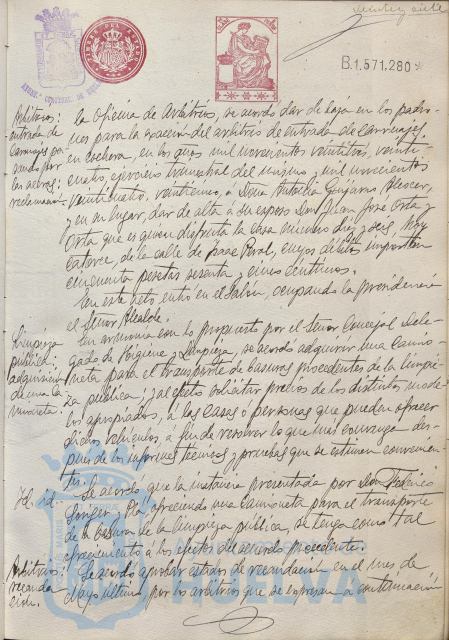 veinte y siete
B.1.571.280
Arbitrios:
entrada de
Carruajes
por
las aceras:
reclamación
la Oficina de Arbitrios, se acordó dar de baja en los padro-
nes para la exacción del arbitrio de entrada de carruajes
en cochera, en los años mil novecientos veintitres, veinti-
cuatro, ejercicio trimestral del mismo, mil novecientos
veinticuatro, veinticinco, á Doña Antonia
y en su lugar, dar de alta á su esposo Don Juan José Orta y
Orta que es quien disfruta la casa número diez y seis, hoy
catorce, de la calle de Isaac Peral, cuyos débitos importan
cincuenta pesetas sesenta y cinco centimos.
En este acto entró en el Salón, ocupando la presidencia
el Señor Alcalde.
Limpieza
pública:
adquisición
de una ca-
mioneta:
En armonia con lo propuesto por el Señor Concejal Dele-
gado de Higiene y Limpieza, se acordó adquirir una camio-
neta para el transporte de basuras procedentes de la limpie-
za pública; y al efecto solicitar precios de los distintos mode-
los apropiados, á las casas ó personas que puedan ofrecer
dichos vehiculos, á fin de resolver lo que mas convenga des-
pues de los informes técnicos y pruebas que se estimen convenien-
tes.
Id. id.
Se acordó que la instancia presentada por Don Federico
ofreciendo una camioneta para el transporte
de la basura de la limpieza pública, se tenga como tal
ofrecimiento á los efectos del acuerdo precedente.
Arbitrios:
recauda-
ción.
Se acordó aprobar estados de recaudación en el mes de
Mayo último, por los arbitrios que se expresan á continuación
HUELVA